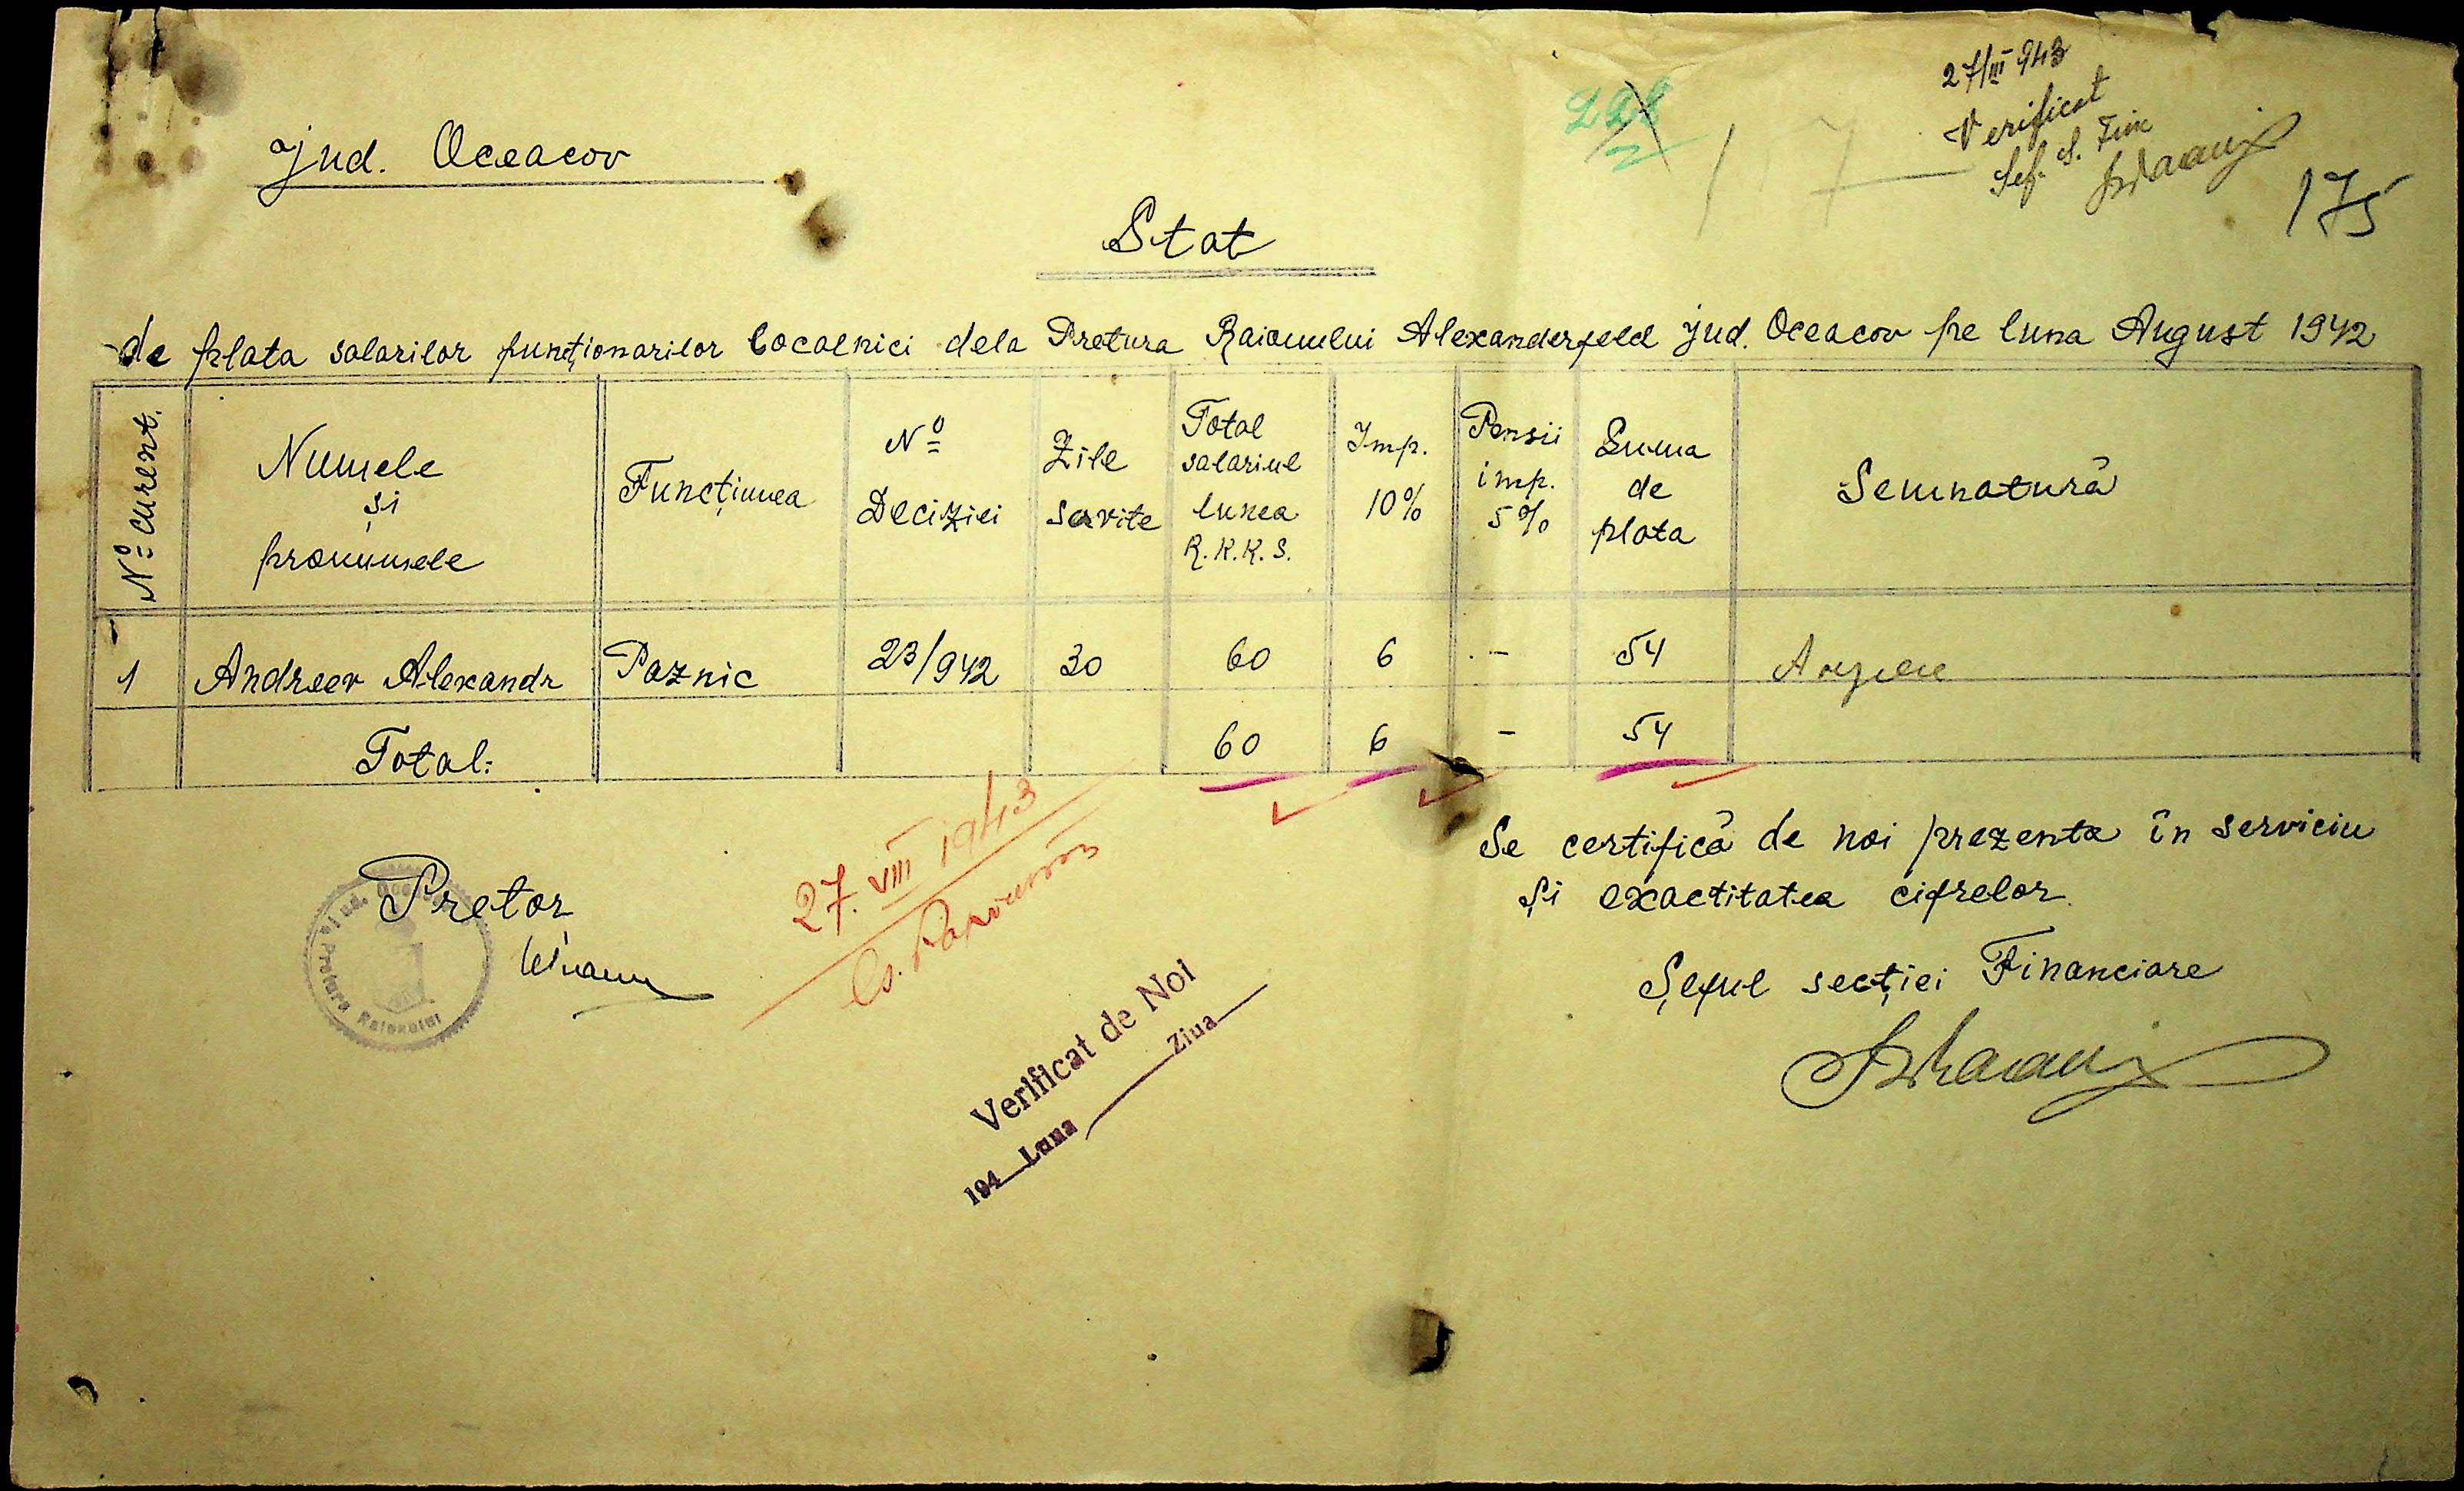 27/III 943
Verificat
Șef. S. Fin
228
17
175
Jud. Oceacov
Stat
de plata salarilor funcționarilor localnici dela Pretura Raionului Alexanderfeld jud. Oceacov pe luna August 1942
Nº curent. | Numele și pronumele | Funcțiunea | Nº Deciziei | Zile servite | Total salariul lunea R.K.K.S. | Imp. 10% | Pensii imp. 5% | Suma de plata | Semnatură
1 | Andreev Alexandr | Paznic | 23/942 | 30 | 60 | 6 | - | 54
Total: | 60 | 6 | - | 54
Se certifică de noi prezenta în serviciu
și exactitatea cifrelor.
Șeful secției Financiare
Pretor
Pretura Raionului
27. VIII 1943
Verificat de Noi
194 Luna Ziua